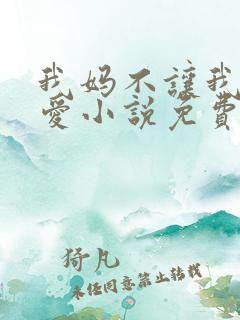 我妈不讓我
愛小説免費
猗凡
未经同意禁止转载